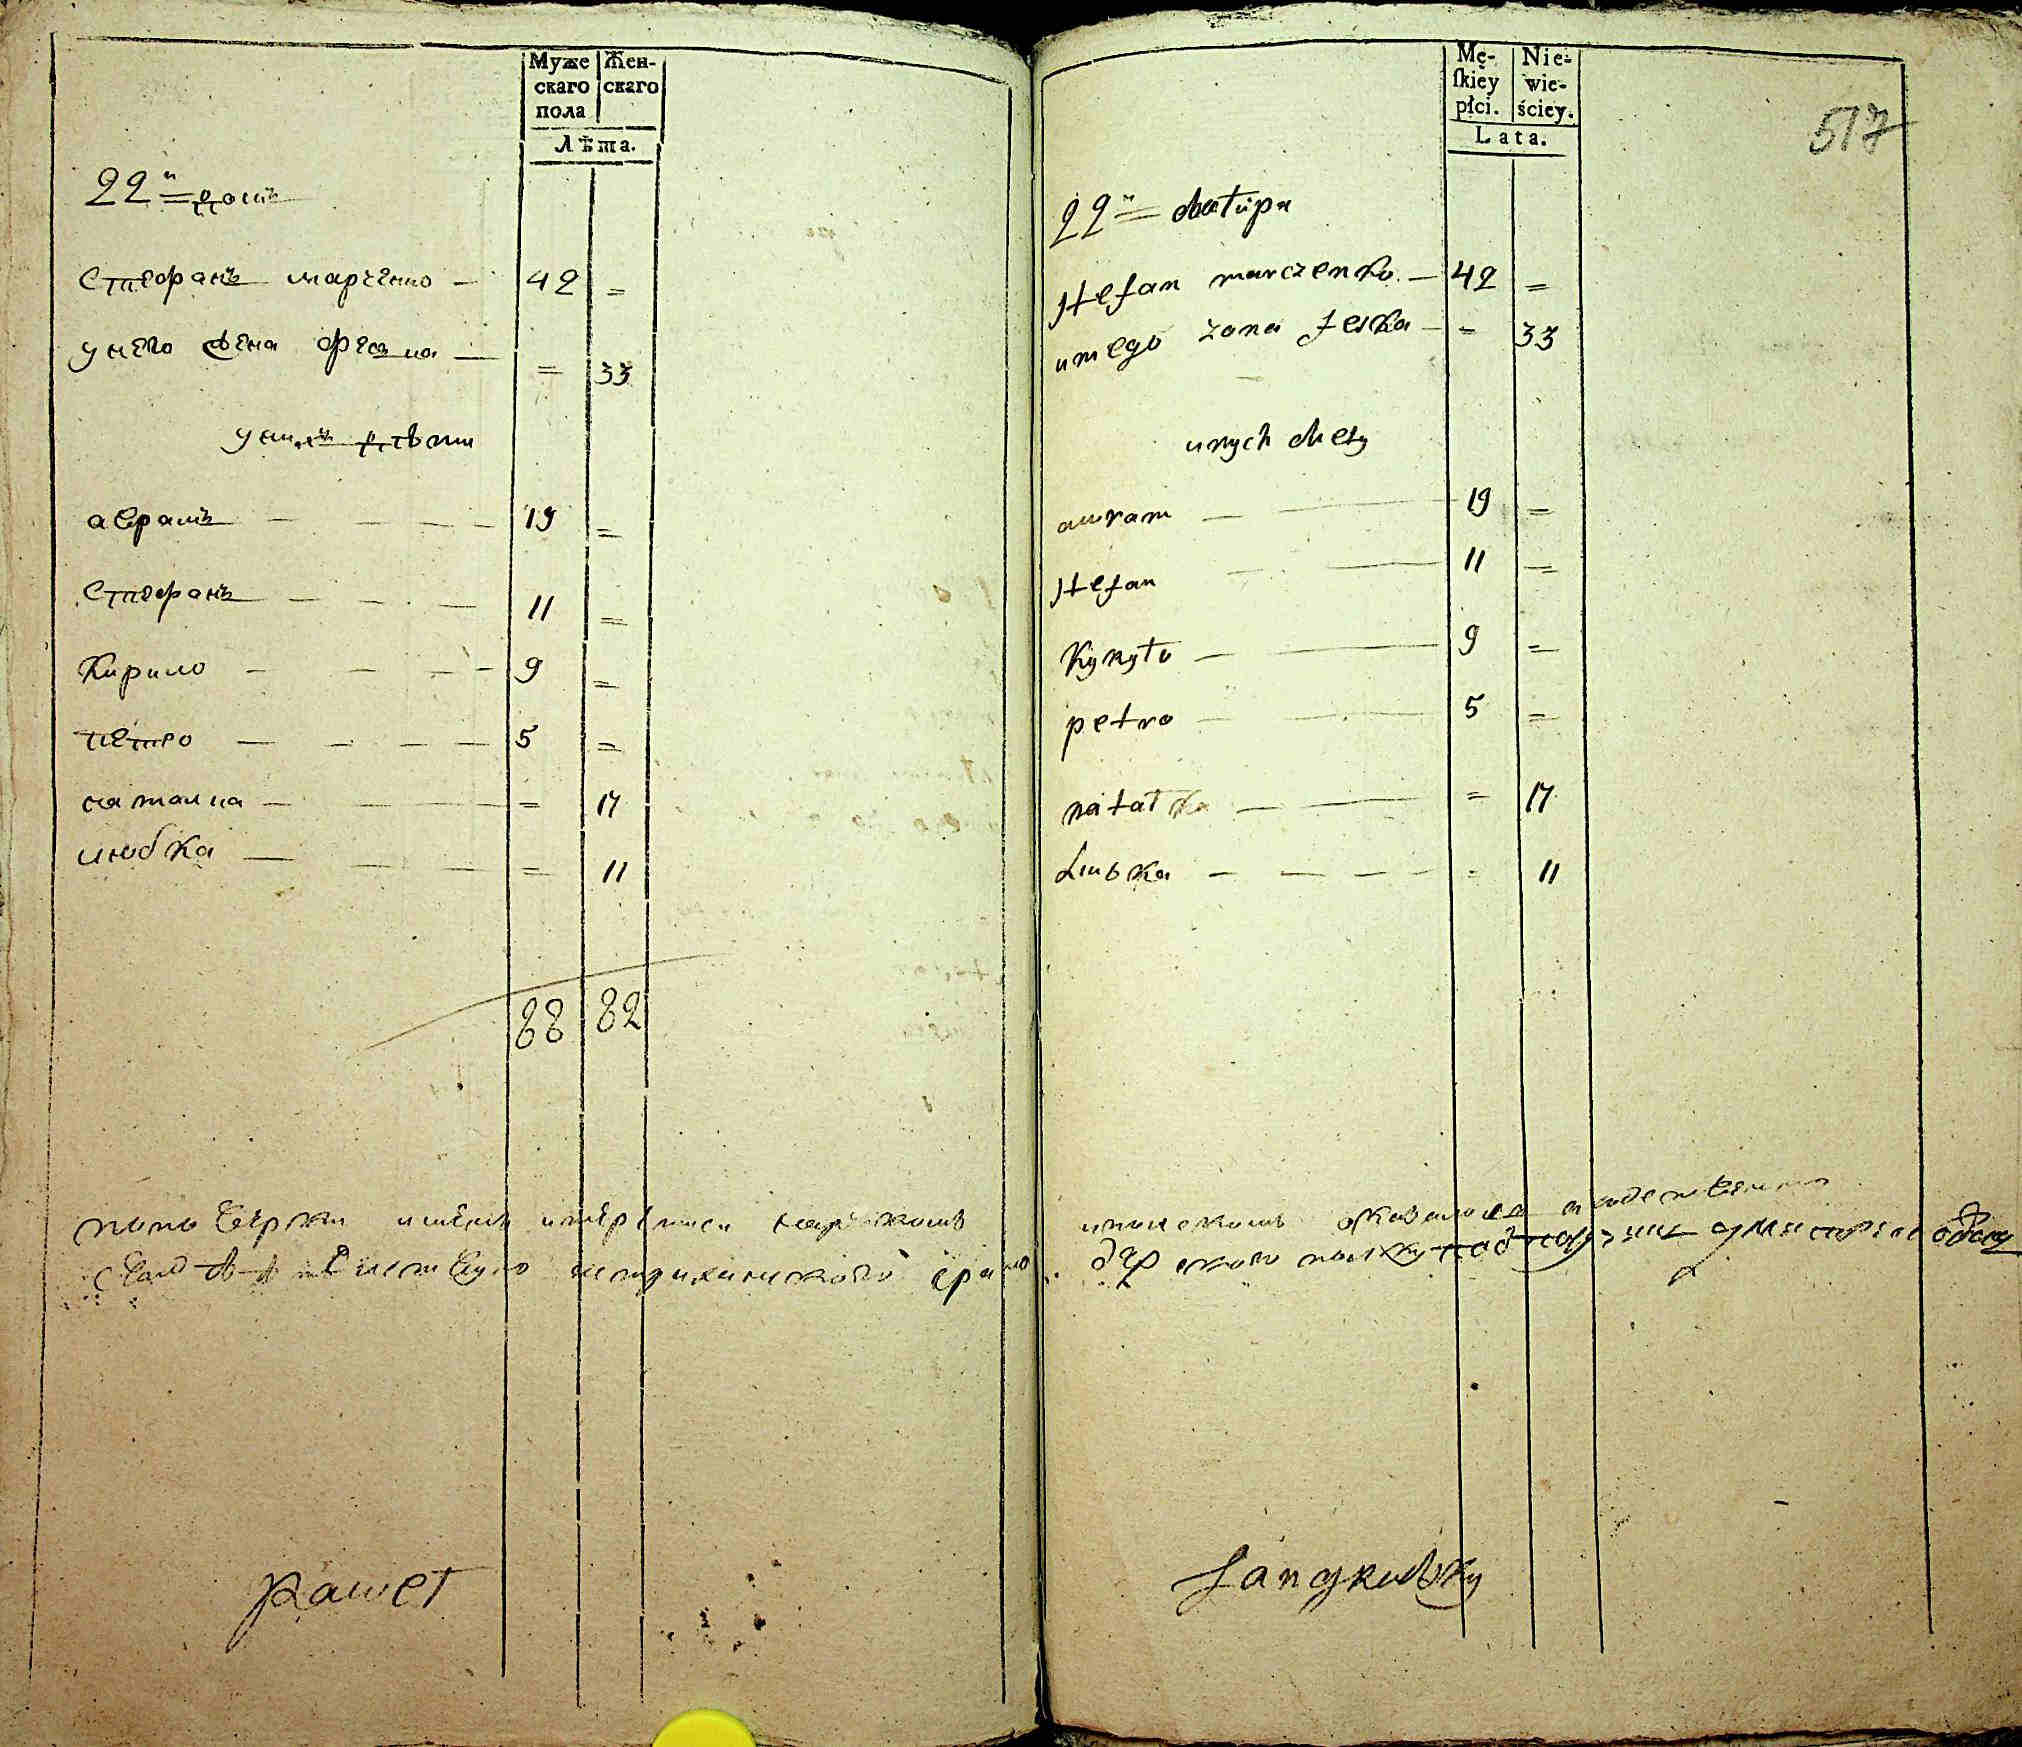 Муже
скаго
пола
Жен-
скаго
Лѣта.
22й домъ
Стефанъ марченко — 42 =
унего жена феска — = 33
унихъ дѣти
аврамъ — 19 =
Стефанъ — 11 =
Кирило — 9 =
петро — 5 =
наталка — = 17
любка — = 11
88 82
Paweł
Mę-
ſkiey
płci.
Nie-
wie-
ściey.
Lata.
517
22й chałupa
Stefan marczenko — 42 =
unego zona feska — = 33
unych diety
awram — 19 =
Stefan — 11 =
Kyryło — 9 =
petro — 5 =
natałka — = 17
Lubka — = 11